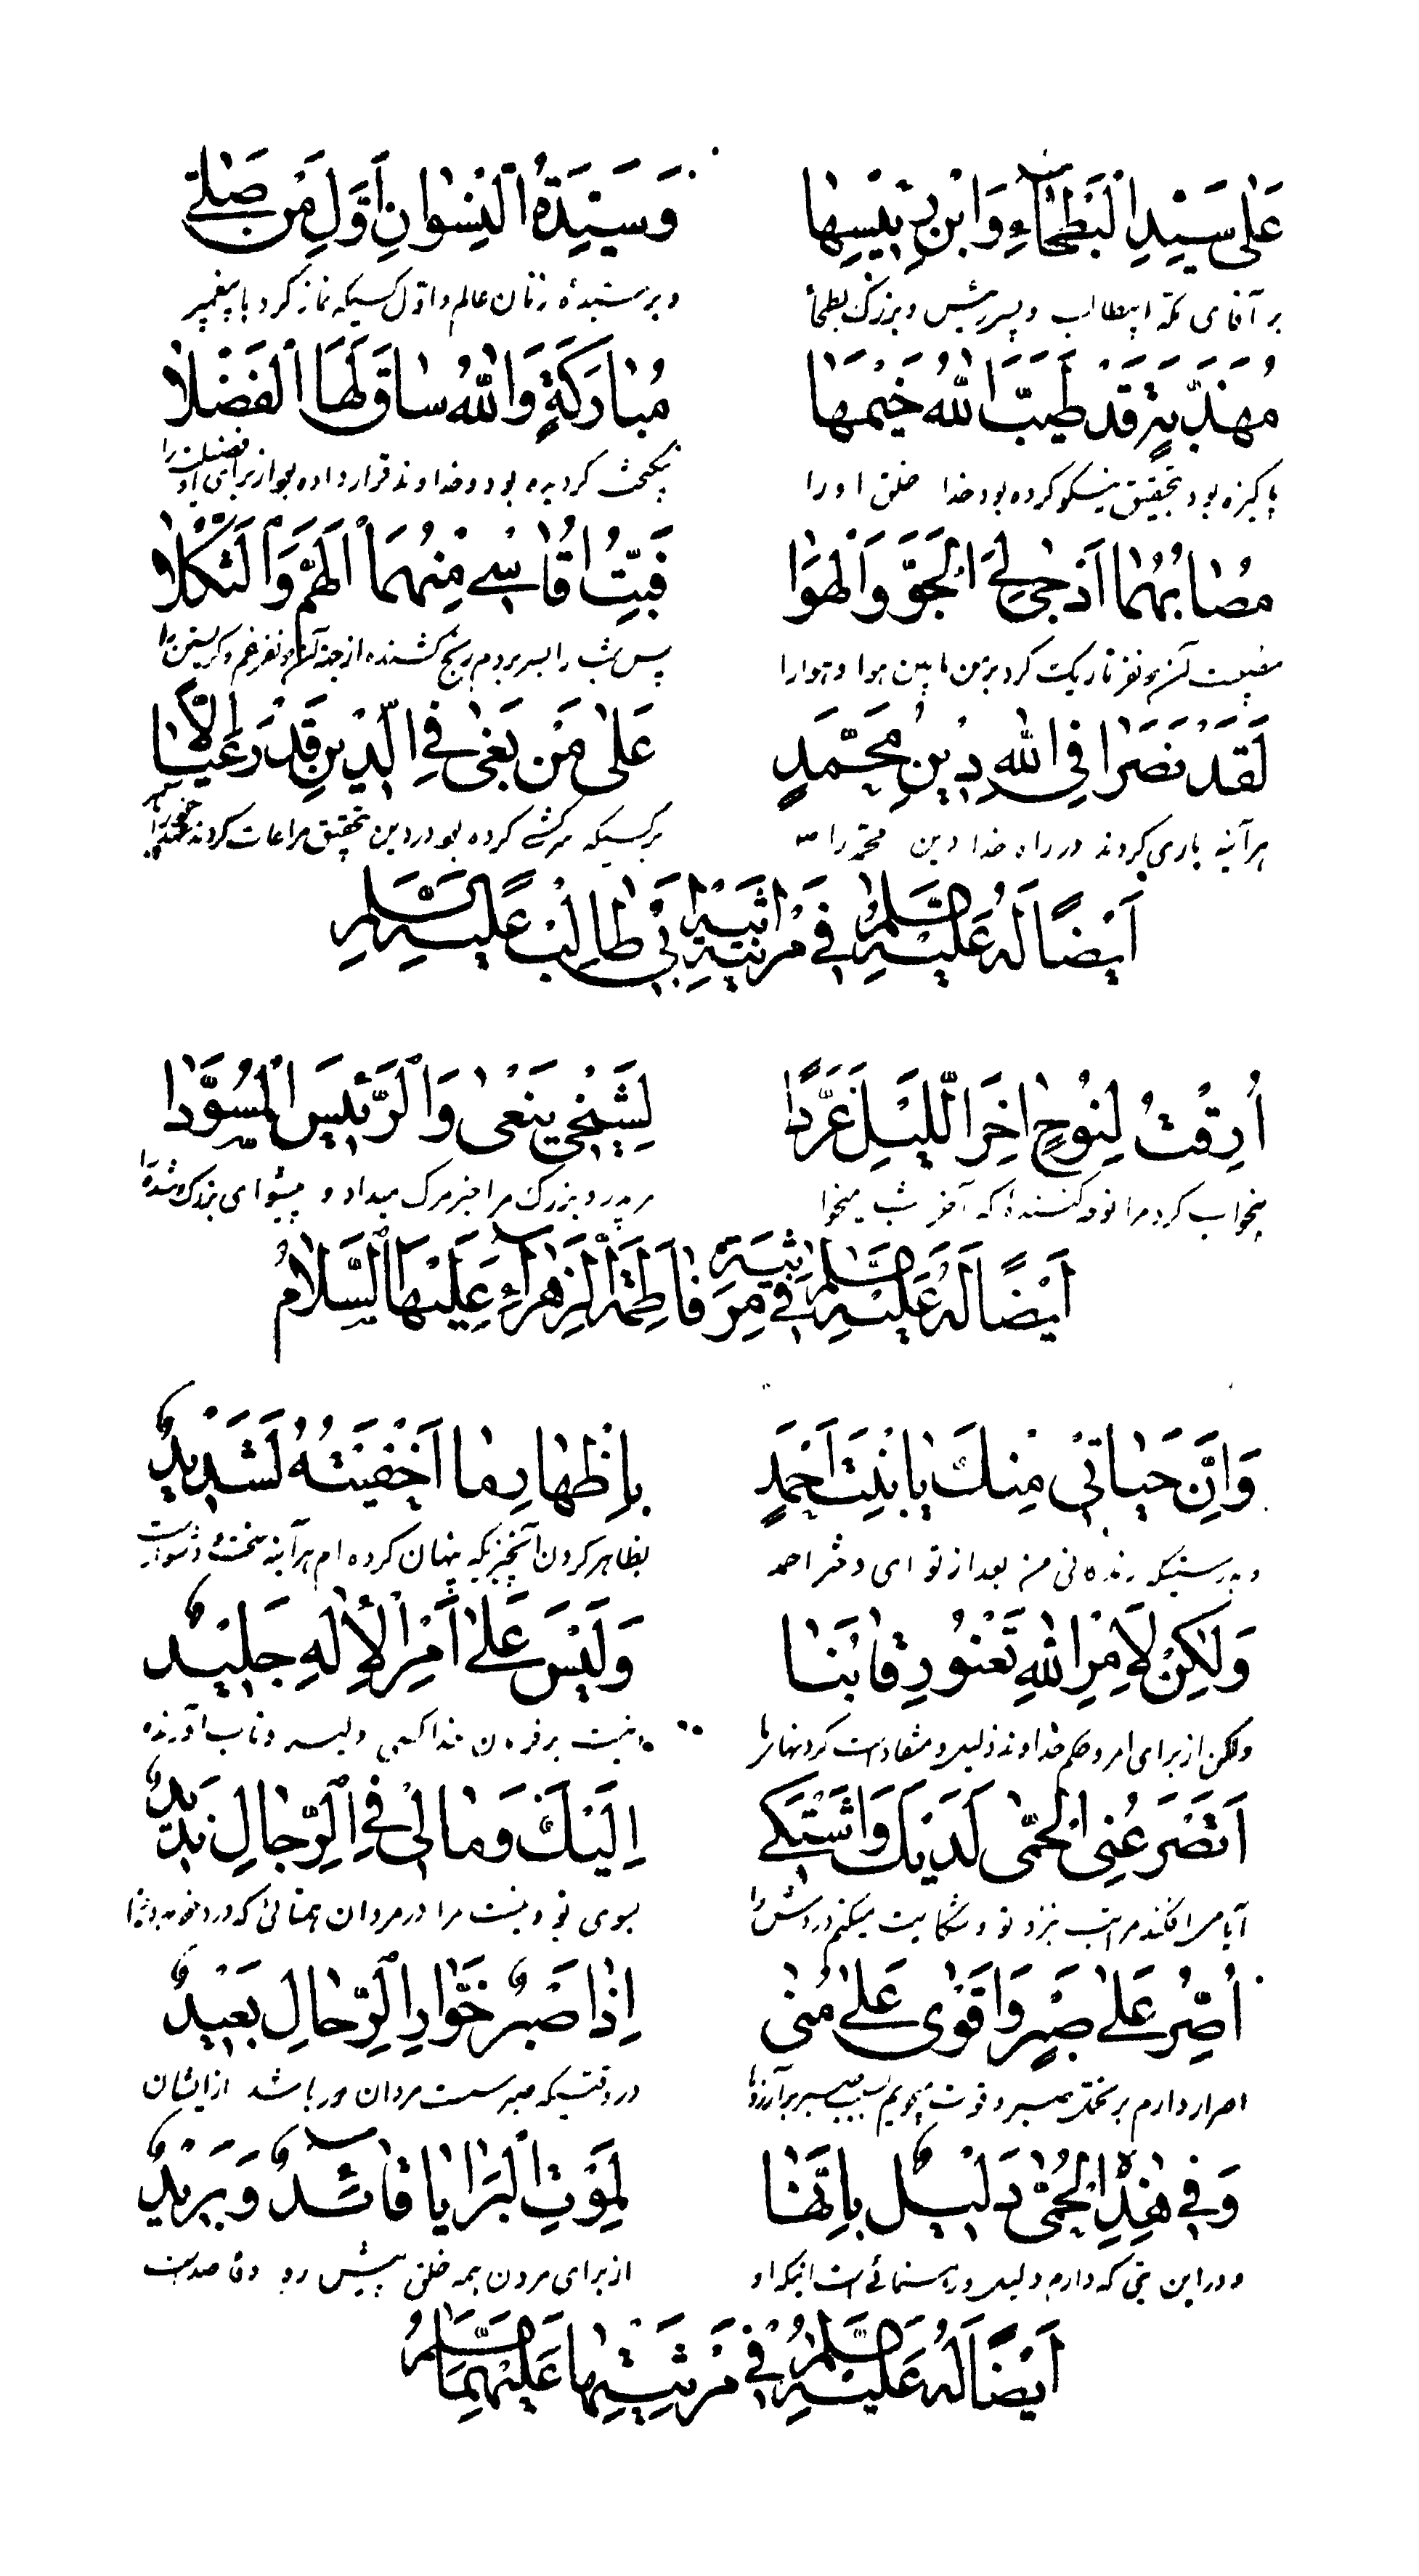 عَلٰى سَيِّدِ الْبَطْحَآءِ وَابْنِ رَئِيْسِهٰا وَسَيِّدَةِ النِّسْوٰانِ اَوَّلِ مَنْ صَلّٰے
بر آقای مکه ابیطالب و پسر رئیس و بزرک بطحأ و بر سیدهٔ زنان عالم و اوّل کسیکه نماز کرد با پیغمبر
مُهَذَّبَةٍ قَدْ طَيَّبَ اللّٰهُ خَيْمَهٰا مُبٰارَكَةٍ وَاللّٰهُ سٰاقَ لَهَا الْفَضْلاٰ
پاکیزه بود بتحقیق نیکو کرده بود خدا خلق او را نیکبخت کردیده بود و خداوند قرار داده بود از برای او فضیلت را
مُصٰابُهُمٰا اَدْجىٰ لِىَ الْجَوَّ وَالْهَوٰا فَبِتُّ اُقٰاسِے مِنْهُمَا الْهَمَّ وَالثَّكْلاٰ
مصیبت آن دو نفر تاریک کرد بر من مابین هوا و هوا را پس شب را بسر بردم رنج کشنده از جهة آن دو نفر غم و کریستن را
لَقَدْ نَصَرٰا فِى اللّٰهِ دِيْنَ مُحَمَّدٍ عَلٰى مَنْ بَغٰى فِى الدِّيْنِ قَدْ رَعَيٰا اِلاًّ
هرآینه یاری کردند در راه خدا دین محمّد را ص بر کسیکه سرکشی کرده بود در دین بتحقیق مراعات کردند
اَيْضًا لَهُ عَلَيْهِ السَّلٰمُ فِى مَرْثِيَةِ اَبِى طٰالِبٍ عَلَيْهِ السَّلٰمُ
اَرِقْتُ لِنَوْحٍ اٰخِرَ اللَّيْلِ غَرَّدًا لِشَيْخِىْ يَنْعٰى وَالرَّئِيْسَ الْمُسَوَّدٰا
بیخواب کرد مرا نوحه کنندهٔ که آخر شب میخوا مر پدر و بزرک مرا خبر مرک میداد و پیشوای بزرک شده را
اَيْضًا لَهُ عَلَيْهِ السَّلٰمُ فِى مَرْثِيَةِ فٰاطِمَةَ الزَّهْرٰآءِ عَلَيْهَا السَّلاٰمُ
وَاِنَّ حَيٰاتِىْ مِنْكَ يٰا بِنْتَ اَحْمَدٍ بِاِظْهٰارِ مٰا اَخْفَيْتُهُ لَشَدِيْدٌ
و بدرستیکه زنده نی من بعد از تو ای دختر احمد بظاهر کردن آنچیزیکه پنهان کرده ام هرآینه سخت و دشوار است
وَلٰكِنْ لِاَمْرِ اللّٰهِ تَعْنُوْ رِقٰابُنٰا وَلَيْسَ عَلٰى اَمْرِ الْاِلٰهِ جَلِيْدٌ
ولکن از برای امر و حکم خداوند ذلیل و منقاد است کردنهای ما و نیست بر فرمان خدا کسی دلیر و تاب آورنده
اَتَصْرَعُنِى الْحُمّٰى لَدَيْكَ وَاَشْتَكِے اِلَيْكَ وَمٰالِىْ فِى الرِّجٰالِ نَدِيْدٌ
آیا میافکند مرا تب نزد تو و شکایت میکنم دردش را بسوی تو و نیست مرا در مردان همتائی که درد خود
اُصِرُّ عَلٰى صَبْرٍ وَاَقْوٰى عَلٰى مُنٰى اِذٰا صَبْرُ خَوّٰارِ الرِّجٰالِ بَعِيْدٌ
اصرار دارم بر صبر و قوت میجویم بسبب صبر بر آرزوها در وقتیکه صبر سست مردان دور باشد از ایشان
وَفِى هٰذِهِ الْحُمّٰى دَلِيْلٌ بِاَنَّهٰا لِمَوْتِ الْبَرٰايٰا قٰآئِدٌ وَبَرِيْدٌ
و در این تبی که دارم دلیل و راهنمائی است اینکه او از برای مردن همه خلق پیش رو و قاصد است
اَيْضًا لَهُ عَلَيْهِ السَّلٰمُ فِى مَرْثِيَتِهٰا عَلَيْهِمَا السَّلٰمُ